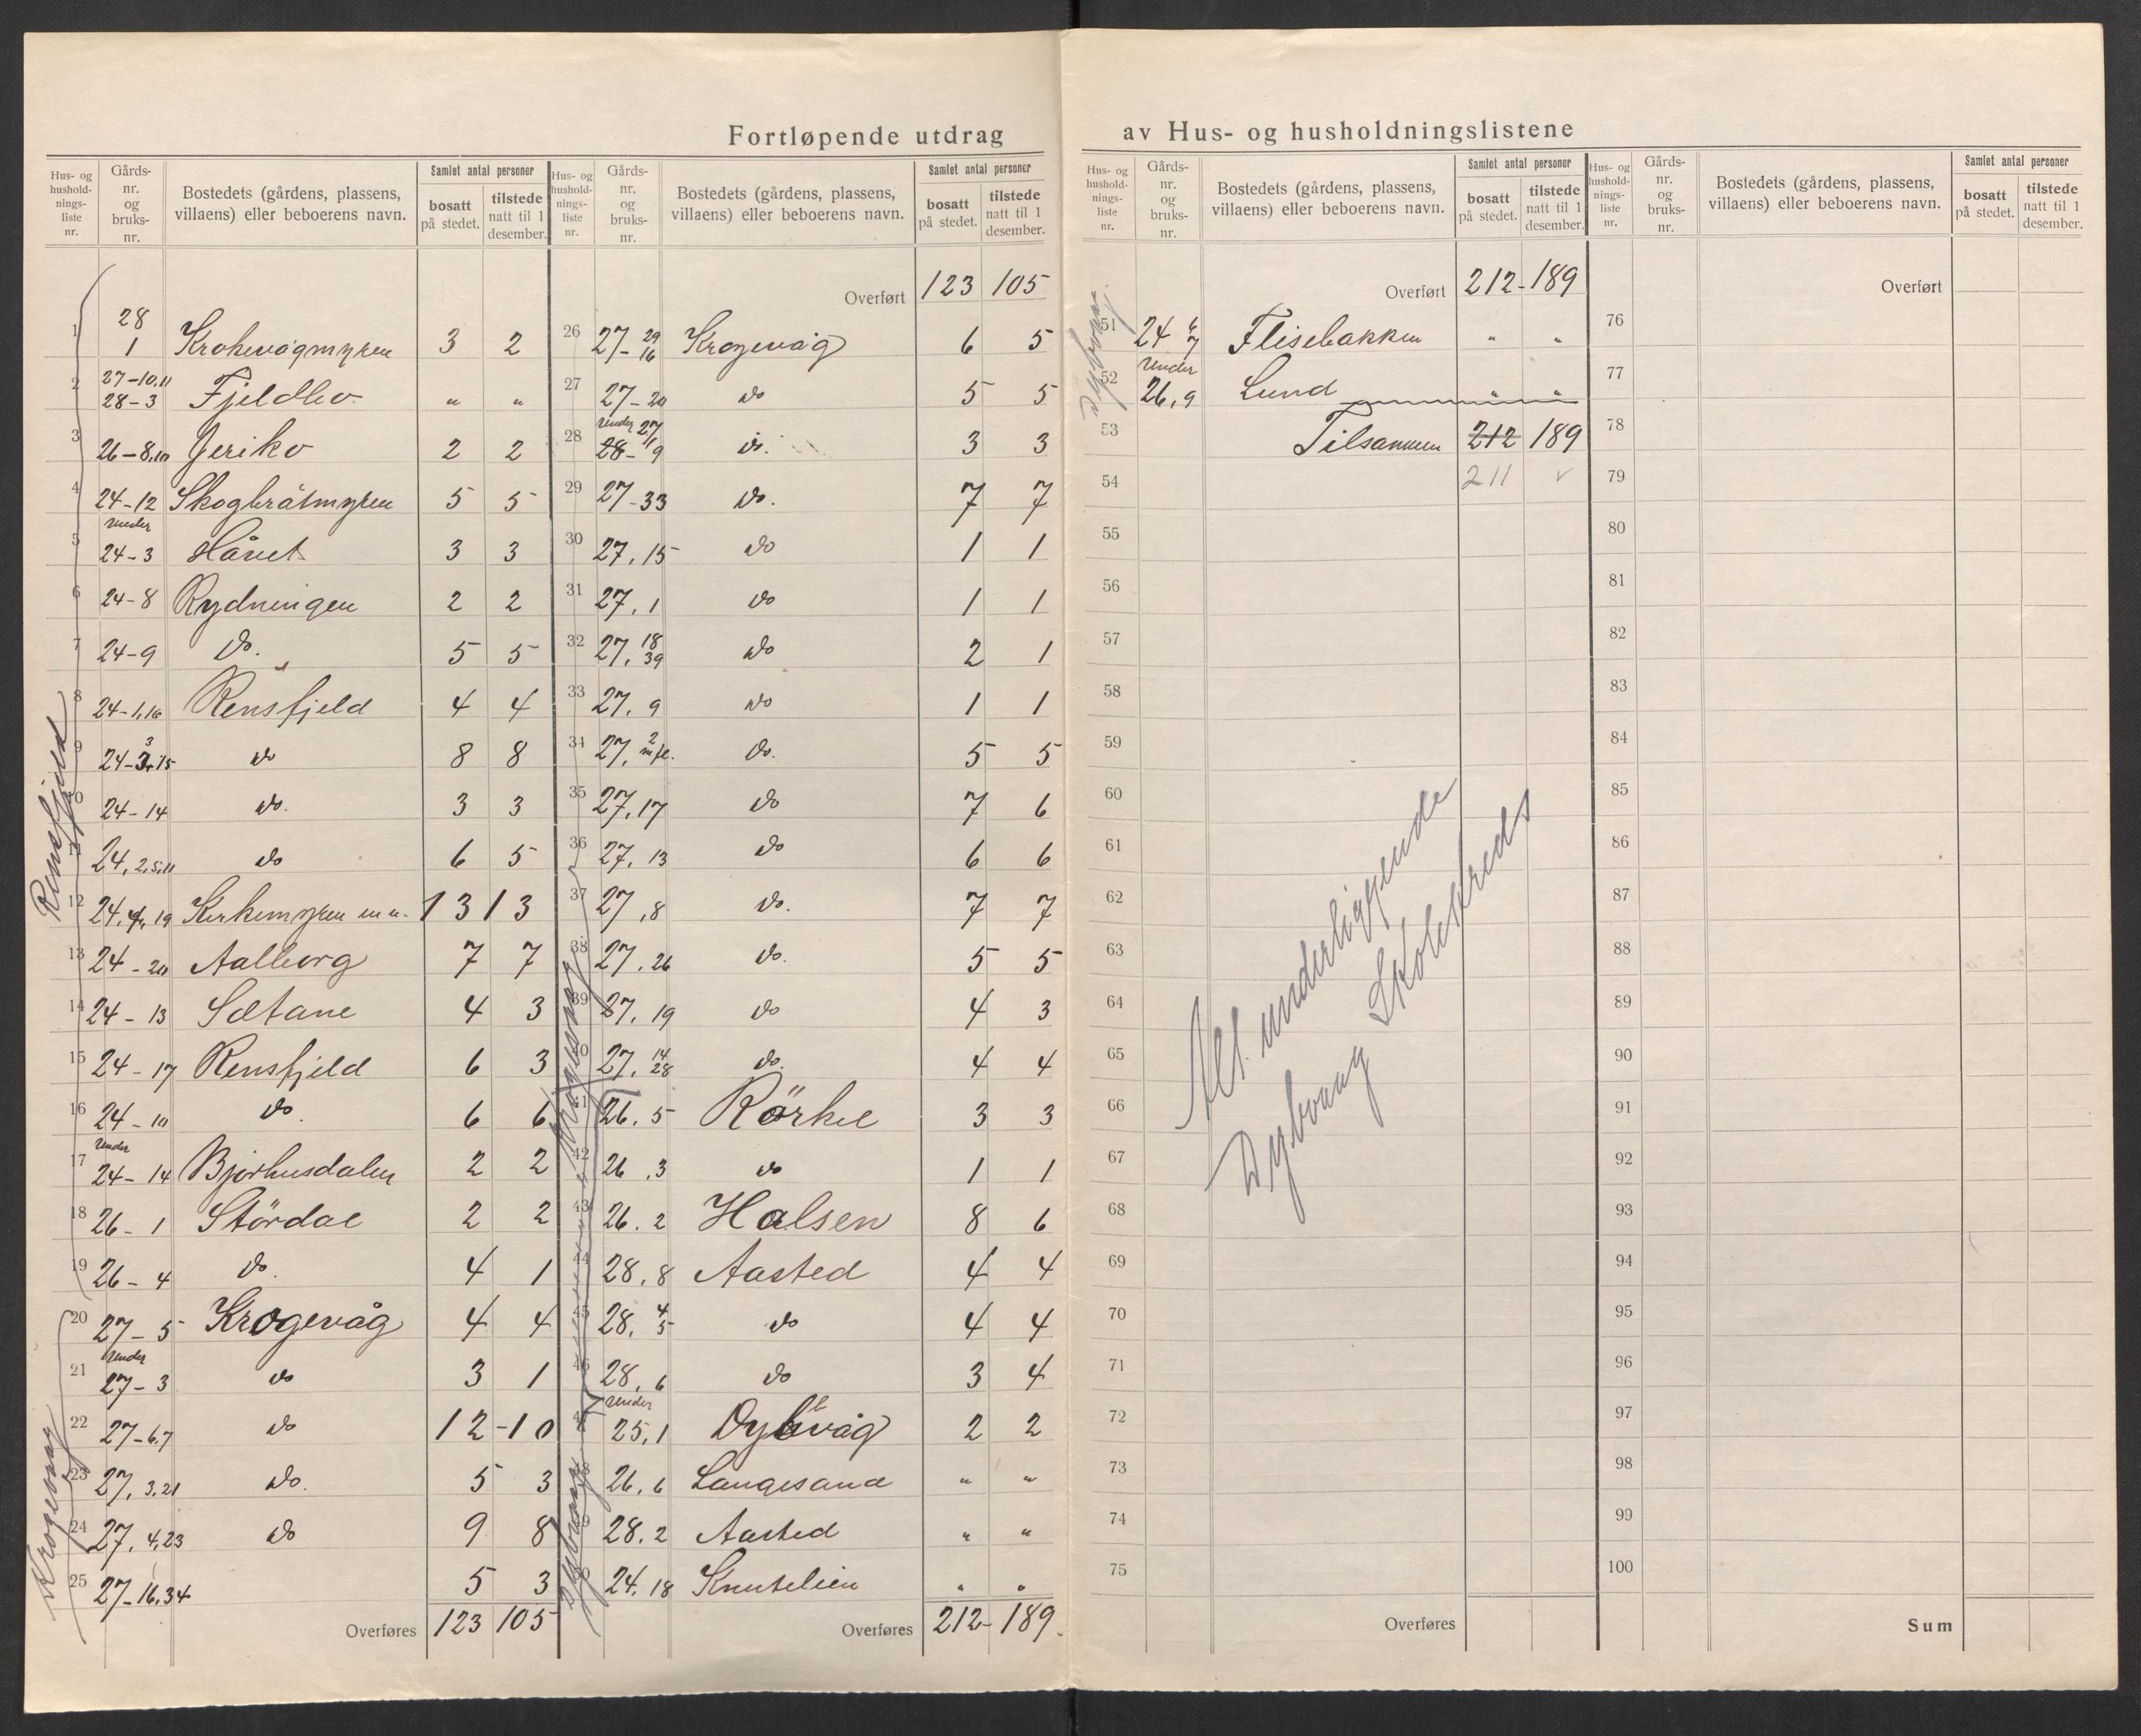 Fortløpende utdrag av Hus- og husholdningslistene
Hus- og hushold-nings-liste nr. | Gårds-nr. og bruks-nr. | Bostedets (gårdens, plassens, villaens) eller beboerens navn. | Samlet antal personer | bosatt på stedet. | tilstede natt til 1 desember.
1 | 28 1 | Krokevågmyren | 3 | 2
2 | 27-10,11 28-3 | Fjeldbo | " | "
3 | 26-8,10 | Jeriko | 2 | 2
4 | 24-12 | Skogbråtmyren | 5 | 5
5 | under 24-3 | Håvet | 3 | 3
6 | 24-8 | Rydningen | 2 | 2
7 | 24-9 | Do. | 5 | 5
8 | 24-1,16 | Rensfjeld | 4 | 4
9 | 24-3,15 | do | 8 | 8
10 | 24-14 | do. | 3 | 3
11 | 24,2,5,11 | do | 6 | 5
12 | 24, 19 | Kirkemyren | 13 | 13
13 | 24-20 | Aalborg | 7 | 7
14 | 24-13 | Sætane | 4 | 3
15 | 24-17 | Rensfjeld | 6 | 3
16 | 24-10 | do. | 6 | 6
17 | under 24-14 | Bjørhusdalen | 2 | 2
18 | 26-1 | Stördal | 2 | 2
19 | 26-4 | do. | 4 | 1
20 | 27-5 | Krogevåg | 4 | 4
21 | under 27-3 | do | 3 | 1
22 | 27-6,7 | do | 12 | 10
23 | 27,3,21 | do. | 5 | 3
24 | 27,4,23 | do | 9 | 8
25 | 27-16,34 | 5 | 3
Overføres | 123 | 105
Rensfjeld
Krogevaag
Hus- og hushold-nings-liste nr. | Gårds-nr. og bruks-nr. | Bostedets (gårdens, plassens, villaens) eller beboerens navn. | Samlet antal personer | bosatt på stedet. | tilstede natt til 1 desember.
Overført | 123 | 105
26 | 27-29 16 | Krogevåg | 6 | 5
27 | 27-20 | do | 5 | 5
28 | under 27 28-9 | do. | 3 | 3
29 | 27-33 | do. | 7 | 7
30 | 27,15 | do | 1 | 1
31 | 27,1 | do | 1 | 1
32 | 27,18 39 | do | 2 | 1
33 | 27,9 | do | 1 | 1
34 | 27,2 m.fl. | do. | 5 | 5
35 | 27,17 | do | 7 | 6
36 | 27,13 | do | 6 | 6
37 | 27,8 | do. | 7 | 7
38 | 27,26 | do. | 5 | 5
39 | 27,19 | do | 4 | 3
40 | 27,14 28 | do. | 4 | 4
41 | 26,5 | Rörkil | 3 | 3
42 | 26,3 | do | 1 | 1
43 | 26,2 | Halsen | 8 | 6
44 | 28,8 | Aasted | 4 | 4
45 | 28,4 5 | do | 4 | 4
46 | 28,6 | do | 3 | 4
47 | under 25,1 | Dybvåg | 2 | 2
48 | 26,6 | Langesand | " | "
49 | 28,2 | Aasted | " | "
50 | 24,18 | Knutelien | " | "
Overføres | 212 | 189
Krogevaag
Dybvaag
Hus- og hushold-nings-liste nr. | Gårds-nr. og bruks-nr. | Bostedets (gårdens, plassens, villaens) eller beboerens navn. | Samlet antal personer | bosatt på stedet. | tilstede natt til 1 desember.
Overført | 212 | 189
51 | 24 6 7 | Flisebakken | " | "
52 | under 26,9 | Lund | " | "
53 | Tilsammen | 212 | 189
54 | 211 | ✓
55
56
57
58
59
60
61
62
63
64
65
66
67
68
69
70
71
72
73
74
75
Overføres
Dybvaag
Alt underliggende
Dybvaag Skolekreds
Hus- og hushold-nings-liste nr. | Gårds-nr. og bruks-nr. | Bostedets (gårdens, plassens, villaens) eller beboerens navn. | Samlet antal personer | bosatt på stedet. | tilstede natt til 1 desember.
Overført
76
77
78
79
80
81
82
83
84
85
86
87
88
89
90
91
92
93
94
95
96
97
98
99
100
Sum